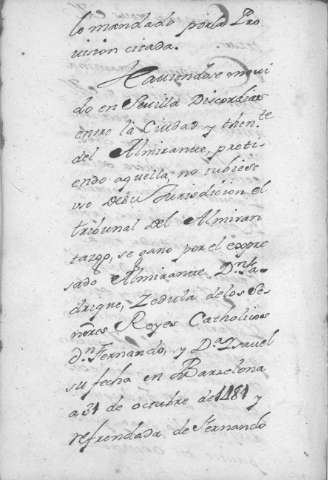 lo mandado por la Pro
vision citada.
Haviendose origui
do en Sevilla Discordias
entre la Ciudad y then.te
del Almirante, preti
endo aquella, no tubiese
uso de su Jurisdicion el
tribunal del Almiran
tazgo, se gano por el expre
sado Almirante, D.n Fa
drique, Zedula de los Se
ñores Reyes Catholicos
d.n Fernando, y D.a Ysavel
su fecha en Barzelona
a 31 de octubre de 1481 y
refrendada de Fernando